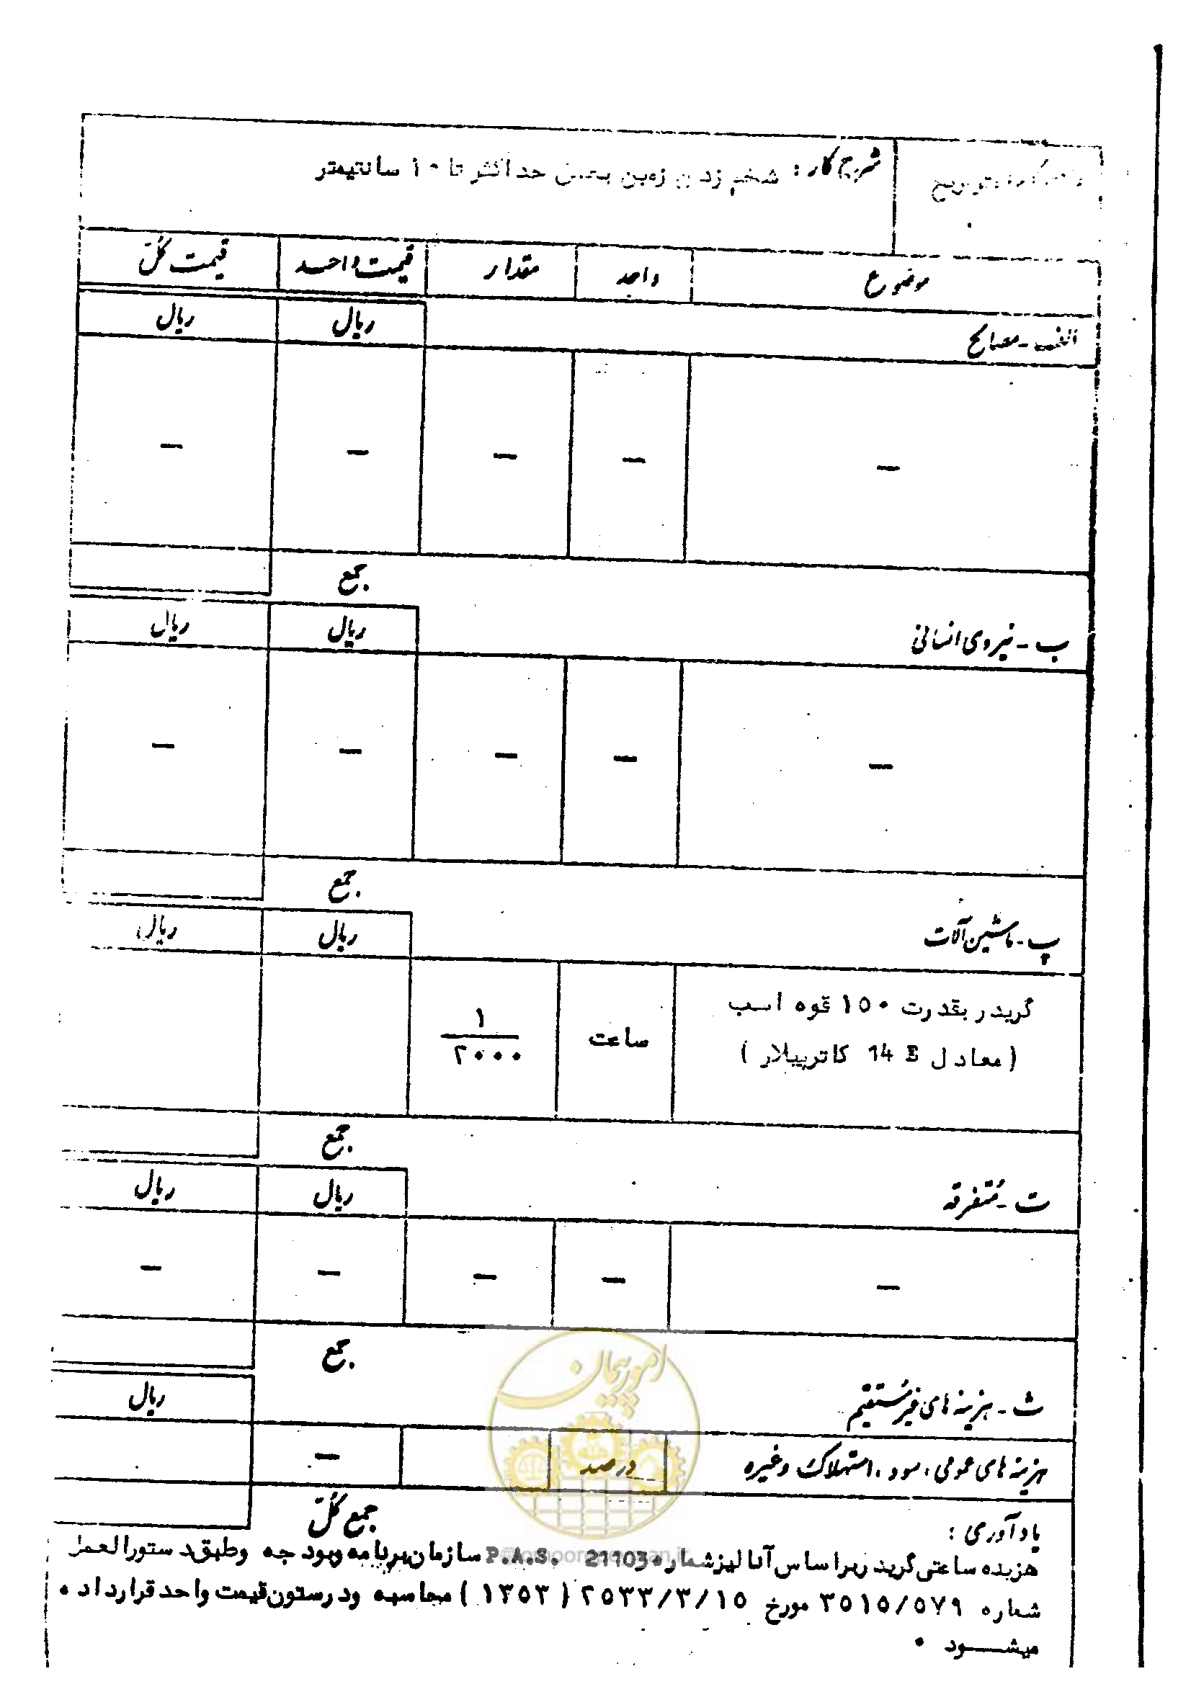 شرح کار : شخم زدن زمین بعمق حداکثر تا ۱۰ سانتیمتر
موضوع واحد مقدار قیمت واحد قیمت کلّ
الف - مصالح ریال ریال
— — — — —
جمع
ب - نیروی انسانی ریال ریال
— — — — —
جمع
پ - ماشین آلات ریال ریال
گریدر بقدرت ۱۵۰ قوه اسب ساعت ۱/۲۰۰۰
( معادل 14 E کاترپیلار )
جمع
ت - مُتفرقه ریال ریال
— — — — —
جمع
امور پیمان
ث - هزینه های غیر مُستقیم ریال
هزینه های عمومی ، سود ، استهلاک و غیره درصد —
جمع کلّ
یادآوری :
هزینه ساعتی گریدر براساس آنالیز شماره P.A.S. 21103 سازمان برنامه وبودجه وطبق دستورالعمل
شماره ۳۵۱۵/۵۷۹ مورخ ۲۵۳۳/۳/۱۵ ( ۱۳۵۳ ) محاسبه ودرستون قیمت واحد قرارداده
میشود .